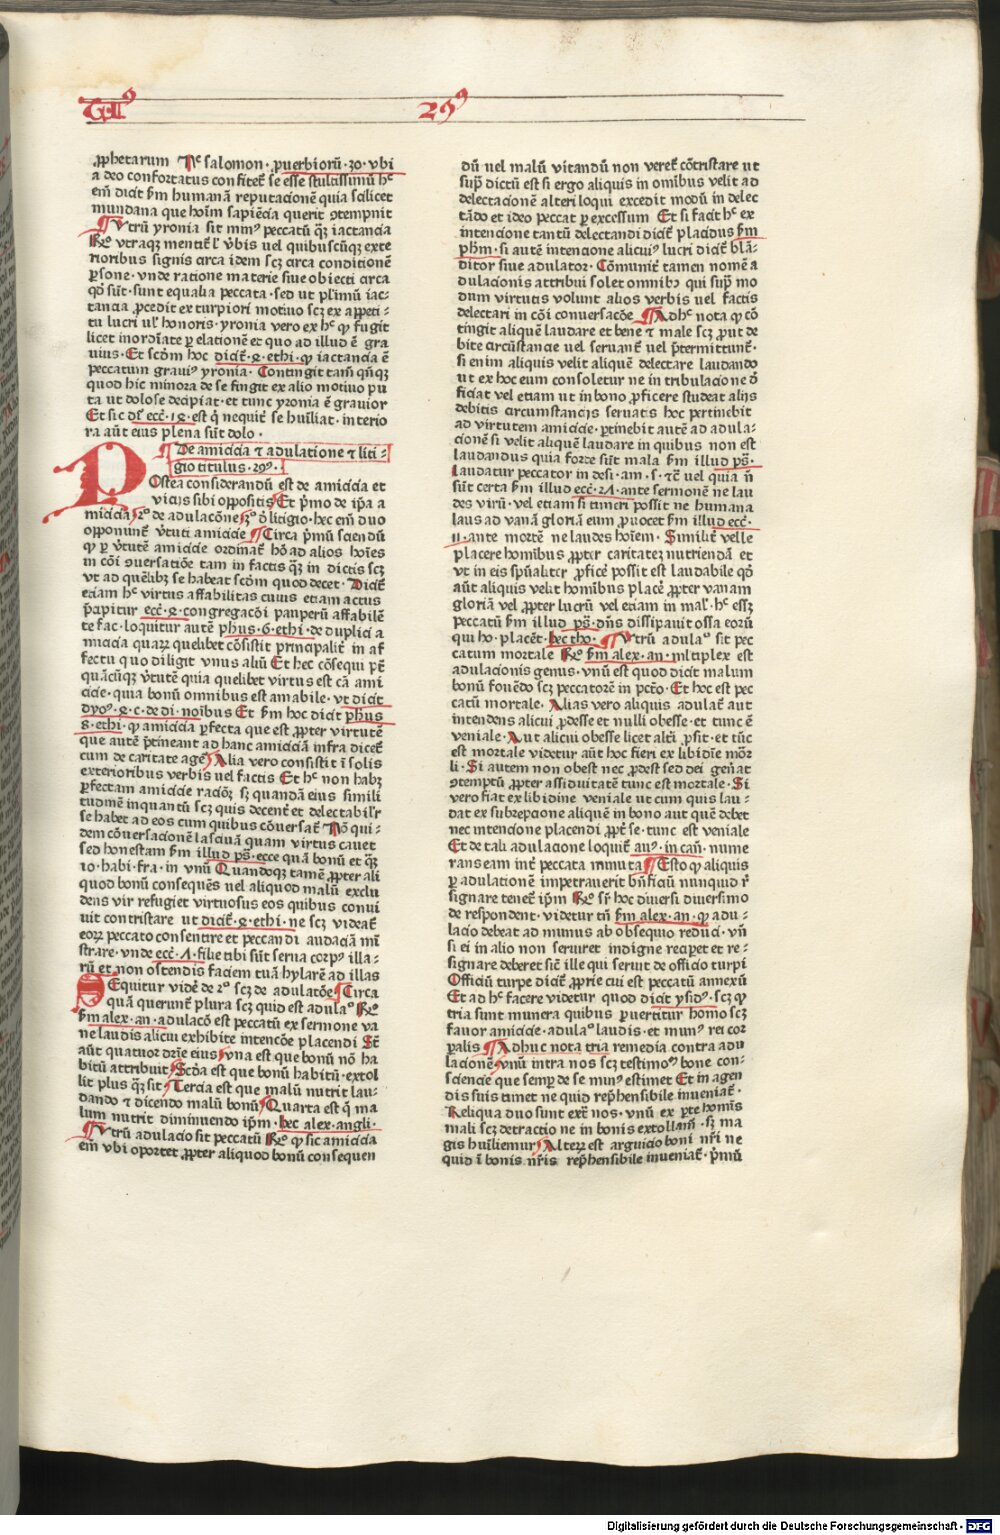 Tit⁹
29⁹
ꝓphetarum Nᶜ salomon· ꝓuerbiorū·30·vbi
a deo confortatus confitet̄ se esse stultissimū hᶜ
em̄ dicit ẜm humanā reputacionē quia scilicet
mundana que hoīm sapiēcia querit ɔtempnit
¶ Vtrū yronia sit min⁹ peccatū qꝫ iactancia
R̄o vtraqꝫ mentit̄ l' v̄bis uel quibuscūqꝫ exte
rioribus signis circa idem scꝫ circa conditionē
ꝑsone· vnde ratione materie siue obiecti circa
qd̄ sūt· sunt equalia peccata· sed ut pl'imū iac-
tancia ꝓcedit ex turpiori motiuo scꝫ ex appeti-
tu lucri ul' honoris· yronia vero ex hᶜ ꝙ fugit
licet inordīate ꝑ elationē et quo ad illud ē gra
uius· Et scd̄m hoc dicit̄·4·ethi·ꝙ iactancia ē
peccatum graui⁹ yronia· Contingit tam̄ qn̄qꝫ
quod hic minora de se fingit ex alio motiuo pu
ta ut dolose decipiat· et tunc yronia ē grauior
Et sic dr̄ ecc̄·19·est q̄ nequit̄ se hūiliat· interio
ra aūt eius plena sūt dolo·
¶ De amicicia ⁊ adulatione ⁊ liti-
gio titulus·29⁹·
Postea considerandū est de amicicia et
vicijs sibi oppositis Et p̄mo de ip̄a a
micicia 2º de adulacōne 3º d̄ litigio· hec em̄ duo
opponunt̄ v̄tuti amicicie ¶ Circa p̄mū sciendū
ꝙ ꝑ v̄tutē amicicie ordinat̄ hō ad alios hoīes
in cōi ɔuersatiōe tam in factis qꝫ in dictis scꝫ
vt ad quēlibꝫ se habeat scd̄m quod decet· Dicit̄
eciam hᶜ virtus affabilitas cuius etiam actus
p̄cipitur ecc̄·4·congregacōi pauperū affabilē
te fac· loquitur autē phus·6·ethi·de duplici a
micicia quarꝫ quelibet cōsistit principalit̄ in af
fectu quo diligit vnus aliū Et hec cōsequi pt̄
quācūqꝫ v̄tutē quia quelibet virtus est cā ami
cicie· quia bonū omnibus est amabile· vt dicit
dyo⁹·4·c·de di·noībus Et ẜm hoc dicit phus
8·ethi·ꝙ amicicia ꝑfecta que est ꝓpter virtutē
que autē ꝑtineant ad hanc amiciciā infra dicet̄
cum de caritate aget̄ Alia vero consistit ī solis
exterioribus verbis uel factis Et hᶜ non habꝫ
ꝑfectam amicicie racōꝫ sꝫ quandā eius simili
tudinē inquantū scꝫ quis decent̄ et delectabil'r
se habet ad eos cum quibus cōuersat̄ Nō qui-
dem cōuersacionē lasciuā quam virtus cauet
sed honestam ẜm illud ps̄·ecce quā bonū et qꝫ
io·habi·fra·in vnū Quandoqꝫ tamē ꝓpter ali
quod bonū consequēs vel aliquod malū exclu
dens vir refugiet virtuosus eos quibus conui
uit contristare ut dicit̄·4·ethi·ne scꝫ videat̄
eorꝫ peccato consentire et peccandi audaciā mī
strare·vnde ecc̄·7·filie tibi sūt serua corp⁹ illa-
rū et non ostendis faciem tuā hylarē ad illas
Sequitur vidē de 2º scꝫ de adulatōe ¶ Circa
quā querunt̄ plura scꝫ quid est adulaº R̄o
ẜm alex·an·adulacō est peccatū ex sermone va
ne laudis alicui exhibite intencōe placendi St̄
aūt quatuor dr̄ie eius vna est que bonū nō ha
bitū attribuit Scd̄a est que bonū habitū·extol
lit plus qꝫ sit Tercia est que malū nutrit lau-
dando ⁊ dicendo malū bonū Quarta est q̄ ma
lum nutrit diminuendo ip̄m· hec alex·angli·
¶ Vtrū adulacio sit peccatū R̄o ꝙ sic amicicia
em̄ vbi oportet ꝓpter aliquod bonū consequen
dū uel malū vitandū non veret̄ cōtristare ut
sup̄ dictū est si ergo aliquis in om̄ibus velit ad
delectacionē alteri loqui excedit modū in delec
tādo et ideo peccat ꝑ excessum Et si facit hᶜ ex
intencione tantū delectandi dicit̄ placidus ẜm
phm· si autē intencione alicui⁹ lucri dicit̄ blā-
ditor siue adulator· Cōmunit̄ tamen nomē a
dulacionis attribui solet omnibꝫ qui sup̄ mo
dum virtutis volunt alios verbis vel factis
delectari in cōi conuersacōe ¶ Adhᶜ nota ꝙ cō
tingit aliquē laudare et bene ⁊ male scꝫ ꝓut de
bite circūstancie vel seruant̄ vel p̄termittunt̄·
si enim aliquis velit aliquē delectare laudando
ut ex hoc eum consoletur ne in tribulacione d̄
ficiat vel etiam ut in bono ꝓficere studeat alijs
debitis circumstancijs seruatis hoc pertinebit
ad virtutem amicicie· ꝑtinebit autē ad adula-
cionē si velit aliquē laudare in quibus non est
laudandus quia forte sūt mala ẜm illud ps̄·
laudatur peccator in desi·am·s·⁊c̄ uel quia n̄
sūt certa ẜm illud ecc̄·27·ante sermonē ne lau
des virū·vel etiam si timeri possit ne humana
laus ad vanā gloriā eum ꝓuocet ẜm illud ecc̄·
11·ante mortē ne laudes hoīem· Similit̄ velle
placere hoībus ꝓpter caritatē nutriendā et
vt in eis spūaliter ꝓficē possit est laudabile qd̄
aūt aliquis velit hoībus placē ꝓpter vanam
gloriā vel ꝓpter lucrū vel etiam in mal'·hᶜ essꝫ
peccatū ẜm illud ps̄·dn̄s dissipauit ossa eorū
qui ho·placēt·hec tho· ¶ Vtrū adulaº sit pec
catum mortale R̄o ẜm alex·an·ml'tiplex est
adulacionis genus·vnū est quod dicit malum
bonū fouēdo scꝫ peccatorē in pctō·Et hoc est pec
catū mortale· Alias vero aliquis adulat̄ aut
intendens alicui ꝓdesse et nulli obesse·et tunc ē
veniale· Aut alicui obesse licet alt̄i ꝓsit·et tūc
est mortale videtur aūt hoc fieri ex libidīe mōr
li· Si autem non obest nec ꝓdest sed dei gen̄at
ɔtemptū ꝓpter assiduitatē tunc est mortale· Si
vero fiat ex libidine veniale ut cum quis lau-
dat ex subrepcione aliquē in bono aut quē debet
nec intencione placendi ꝓpt̄ se·tunc est veniale
Et de tali adulacione loquit̄ au⁹·in can̄·nume
rans eam int̄ peccata minuta ¶ Esto ꝙ aliquis
ꝑ adulationē impetrauerit bn̄ficiū nunquid r̄
signare tenet̄ ip̄m R̄o sr̄ hoc diuersi diuersimo
de respondent·videtur tn̄ ẜm alex·an·ꝙ adu-
lacio debeat ad munus ab obsequio reduci·vn̄
si ei in alio non seruret indigne recip̄et et re-
signare deberet sic̄ ille qui seruit de officio turpi
Officiū turpe dicit̄ ꝓprie cui est peccatū annexū
Et ad hᶜ facere videtur quod dicit ysid⁹·scꝫ ꝙ
tria sunt munera quibus ꝑuertitur homo scꝫ
fauor amicicie·adulaº laudis·et mun⁹ rei cor
ꝑalis ¶ Adhuc nota tria remedia contra adu
lacionē vnū intra nos scꝫ testimo⁹ bone con-
sciencie que semꝑ de se min⁹ estimet Et in agen
dis suis timet ne quid rep̄hensibile inueniat̄·
Reliqua duo sunt ext̄ nos·vnū ex ꝑte homīs
mali scꝫ detractio ne in bonis extollam̄·sꝫ ma
gis hūiliemur Alterꝫ est arguicio boni nr̄i ne
quid ī bonis nr̄is rep̄hensibile inueniat̄·p̄mū
Digitalisierung gefördert durch die Deutsche Forschungsgemeinschaft - DFG